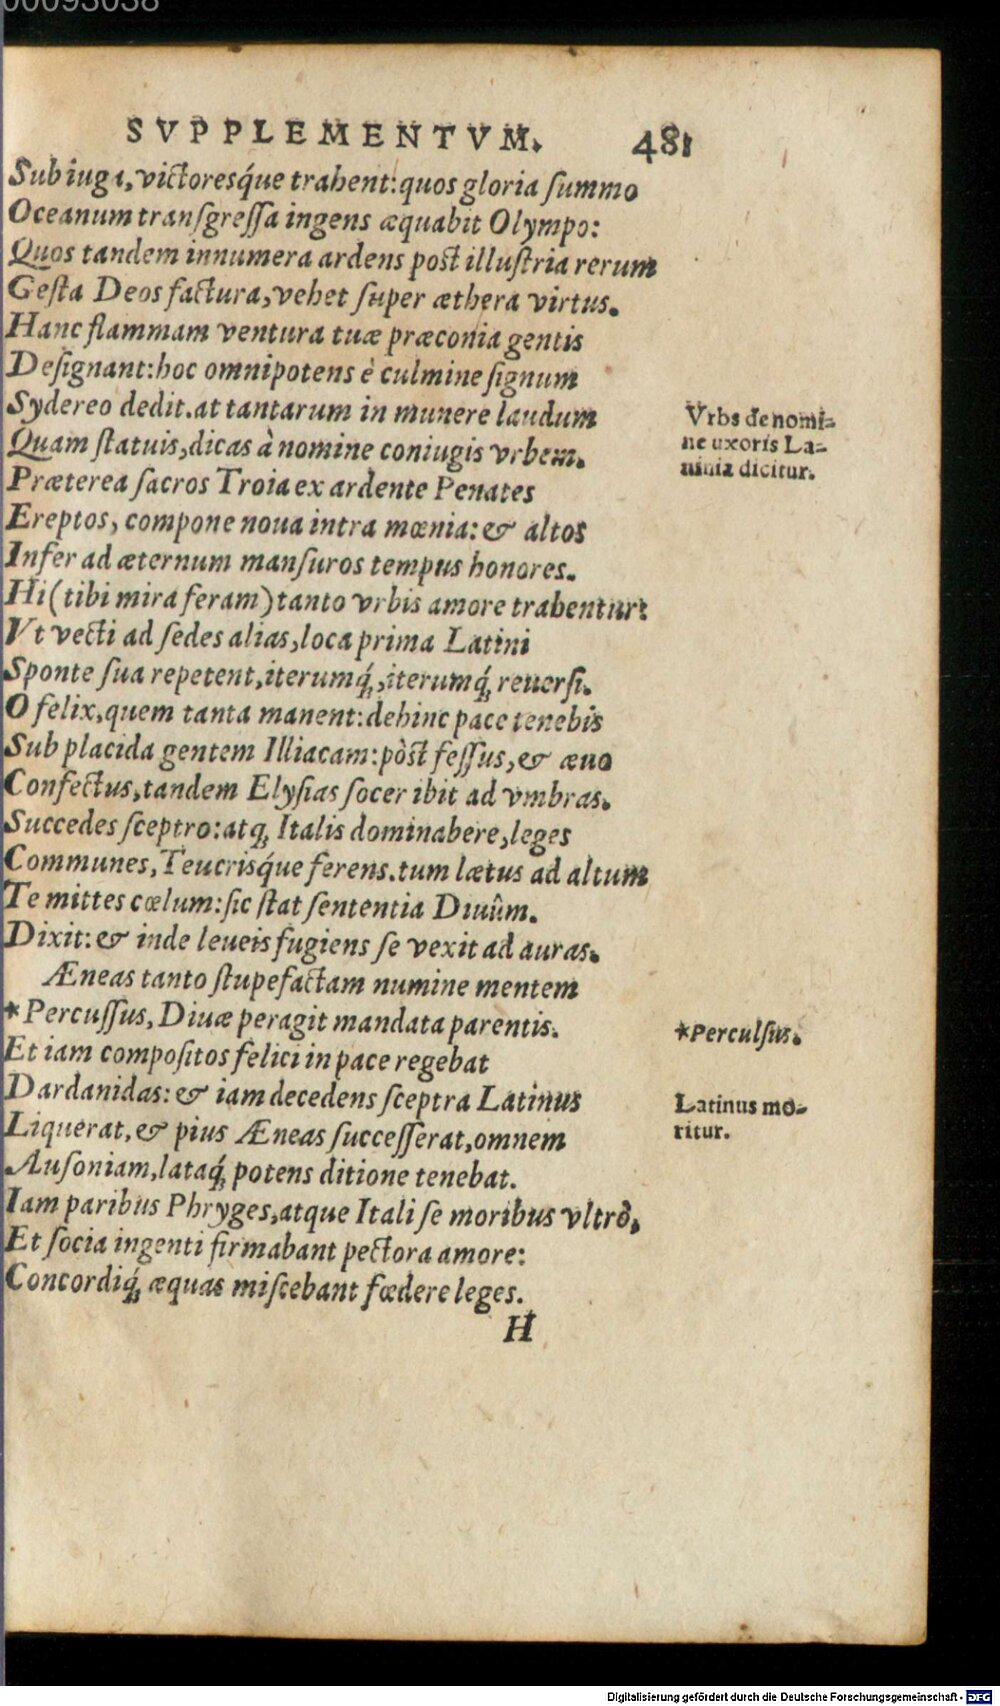 00093038
SVPPLEMENTVM. 481
Sub iuga, victoresq́ue trahent: quos gloria ſummo
Oceanum tranſgreſſa ingens æquabit Olympo:
Quos tandem innumera ardens post illuſtria rerum
Geſta Deos factura, vehet ſuper æthera virtus.
Hanc flammam ventura tuæ præconia gentis
Deſignant: hoc omnipotens è culmine ſignum
Sydereo dedit. at tantarum in munere laudum
Vrbs de nomi-
ne uxoris La-
uinia dicitur.
Quam ſtatuis, dicas à nomine coniugis vrbem.
Præterea ſacros Troia ex ardente Penates
Ereptos, compone noua intra mœnia: & altos
Infer ad æternum manſuros tempus honores.
Hi (tibi mira feram) tanto vrbis amore trahentur:
Vt vecti ad ſedes alias, loca prima Latini
Sponte ſua repetent, iterumq́;, iterumq́; reuerſi.
O felix, quem tanta manent: dehinc pace tenebis
Sub placida gentem Illiacam: pòst feſſus, & æuo
Confectus, tandem Elyſias ſocer ibit ad vmbras.
Succedes ſceptro: atq; Italis dominabere, leges
Communes, Teucrisq́ue ferens. tum lætus ad altum
Te mittes cœlum: ſic ſtat ſententia Diuûm.
Dixit: & inde leueis fugiens ſe vexit ad auras.
Æneas tanto ſtupefactam numine mentem
*Percuſſus, Diuæ peragit mandata parentis.
*Perculſus.
Et iam compoſitos felici in pace regebat
Dardanidas: & iam decedens ſceptra Latinus
Latinus mo-
ritur.
Liquerat, & pius Æneas ſucceſſerat, omnem
Auſoniam, lataq́; potens ditione tenebat.
Iam paribus Phryges, atque Itali ſe moribus vltrò,
Et ſocia ingenti firmabant pectora amore:
Concordiq́; æquas miſcebant fœdere leges.
H
Digitalisierung gefördert durch die Deutsche Forschungsgemeinschaft - DFG